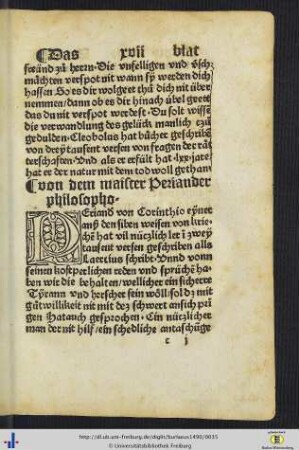 ¶Das xvij blat
freünd zů herrn. Die vnselligen vnd v̈sch
mächten verspot nit wann sy werden dich
hassen So es dir wolgeet thů dich nit über
nemmen / dann ob es dir hinach übel geet
das du nit verspot werdest. Du solt wissē
die verwandlung des gelück manlich czů
gedulden. Cleobolus hat bücher geschribē
von dreÿ tausent versen von fragen der rät
terschafften. Vnd als er erfült hat .lxx. jare
hat er der natur mit dem tod woll gethan
¶von dem maister Periander
philosopho.
PEriand von Corinthio eyner
auß den siben weisen von krie-
chē hat vil nüczlich ler in zweÿ
tausent versen geschriben alls
Laercius schribt. Vnnd vonn
seinen kostperlichen reden vnd sprüchē ha-
ben wir die behalten / wellicher ein sicherre
Tÿrann vnd herscher sein wöll / sol dz mit
gůtwilligkeit nit mit dez schwert an sich prī
gen Hat auch gesprochen. Ein nüczlicher
man der nit hilf / ein schedliche antaschūge
c j
http://dl.ub.uni-freiburg.de/diglit/burlaeus1490/0035
© Universitätsbibliothek Freiburg
Baden-Württemberg